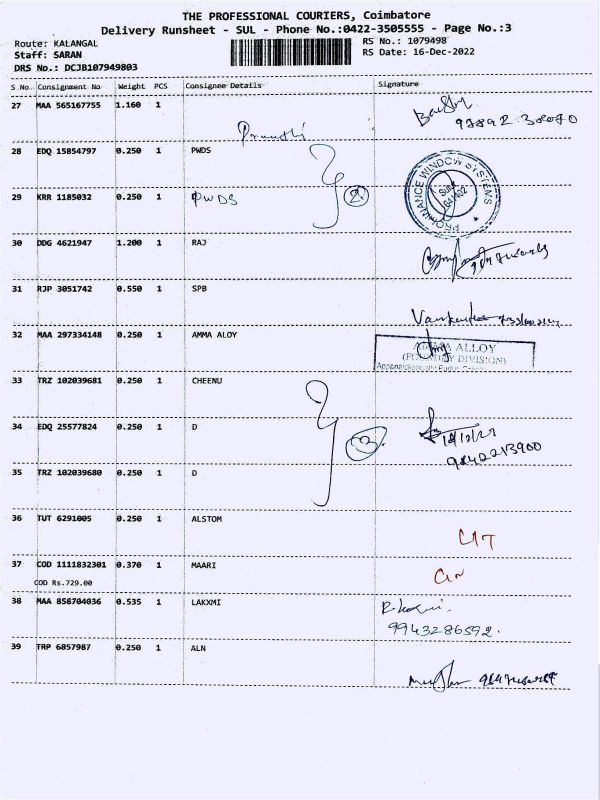 THE PROFESSIONAL COURIERS, Coimbatore
Delivery Runsheet - SUL - Phone No.:0422-3505555 - Page No.:3
Route: KALANGAL
Staff: SARAN
DRS No.: DCJB107949803
RS No.: 1079498
RS Date: 16-Dec-2022
S No Consignment No Weight PCS Consignee Details Signature
27 MAA 565167755 1.160 1
28 EDQ 15854797 0.250 1 PWDS
29 KRR 1185032 0.250 1 PWDS
2
PROMINANCE WINDOW SYSTEMS
30 DDG 4621947 1.200 1 RAJ
31 RJP 3051742 0.550 1 SPB
32 MAA 297334148 0.250 1 AMMA ALOY
AMMA ALLOY
(FOUNDRY DIVISION)
33 TRZ 102039681 0.250 1 CHEENU
34 EDQ 25577824 0.250 1 D
3
9842213900
35 TRZ 102039680 0.250 1 D
36 TUT 6291005 0.250 1 ALSTOM
37 COD 1111832301 0.370 1 MAARI
COD Rs.729.00
38 MAA 858704036 0.535 1 LAKXMI
9943286592.
39 TRP 6857987 0.250 1 ALN